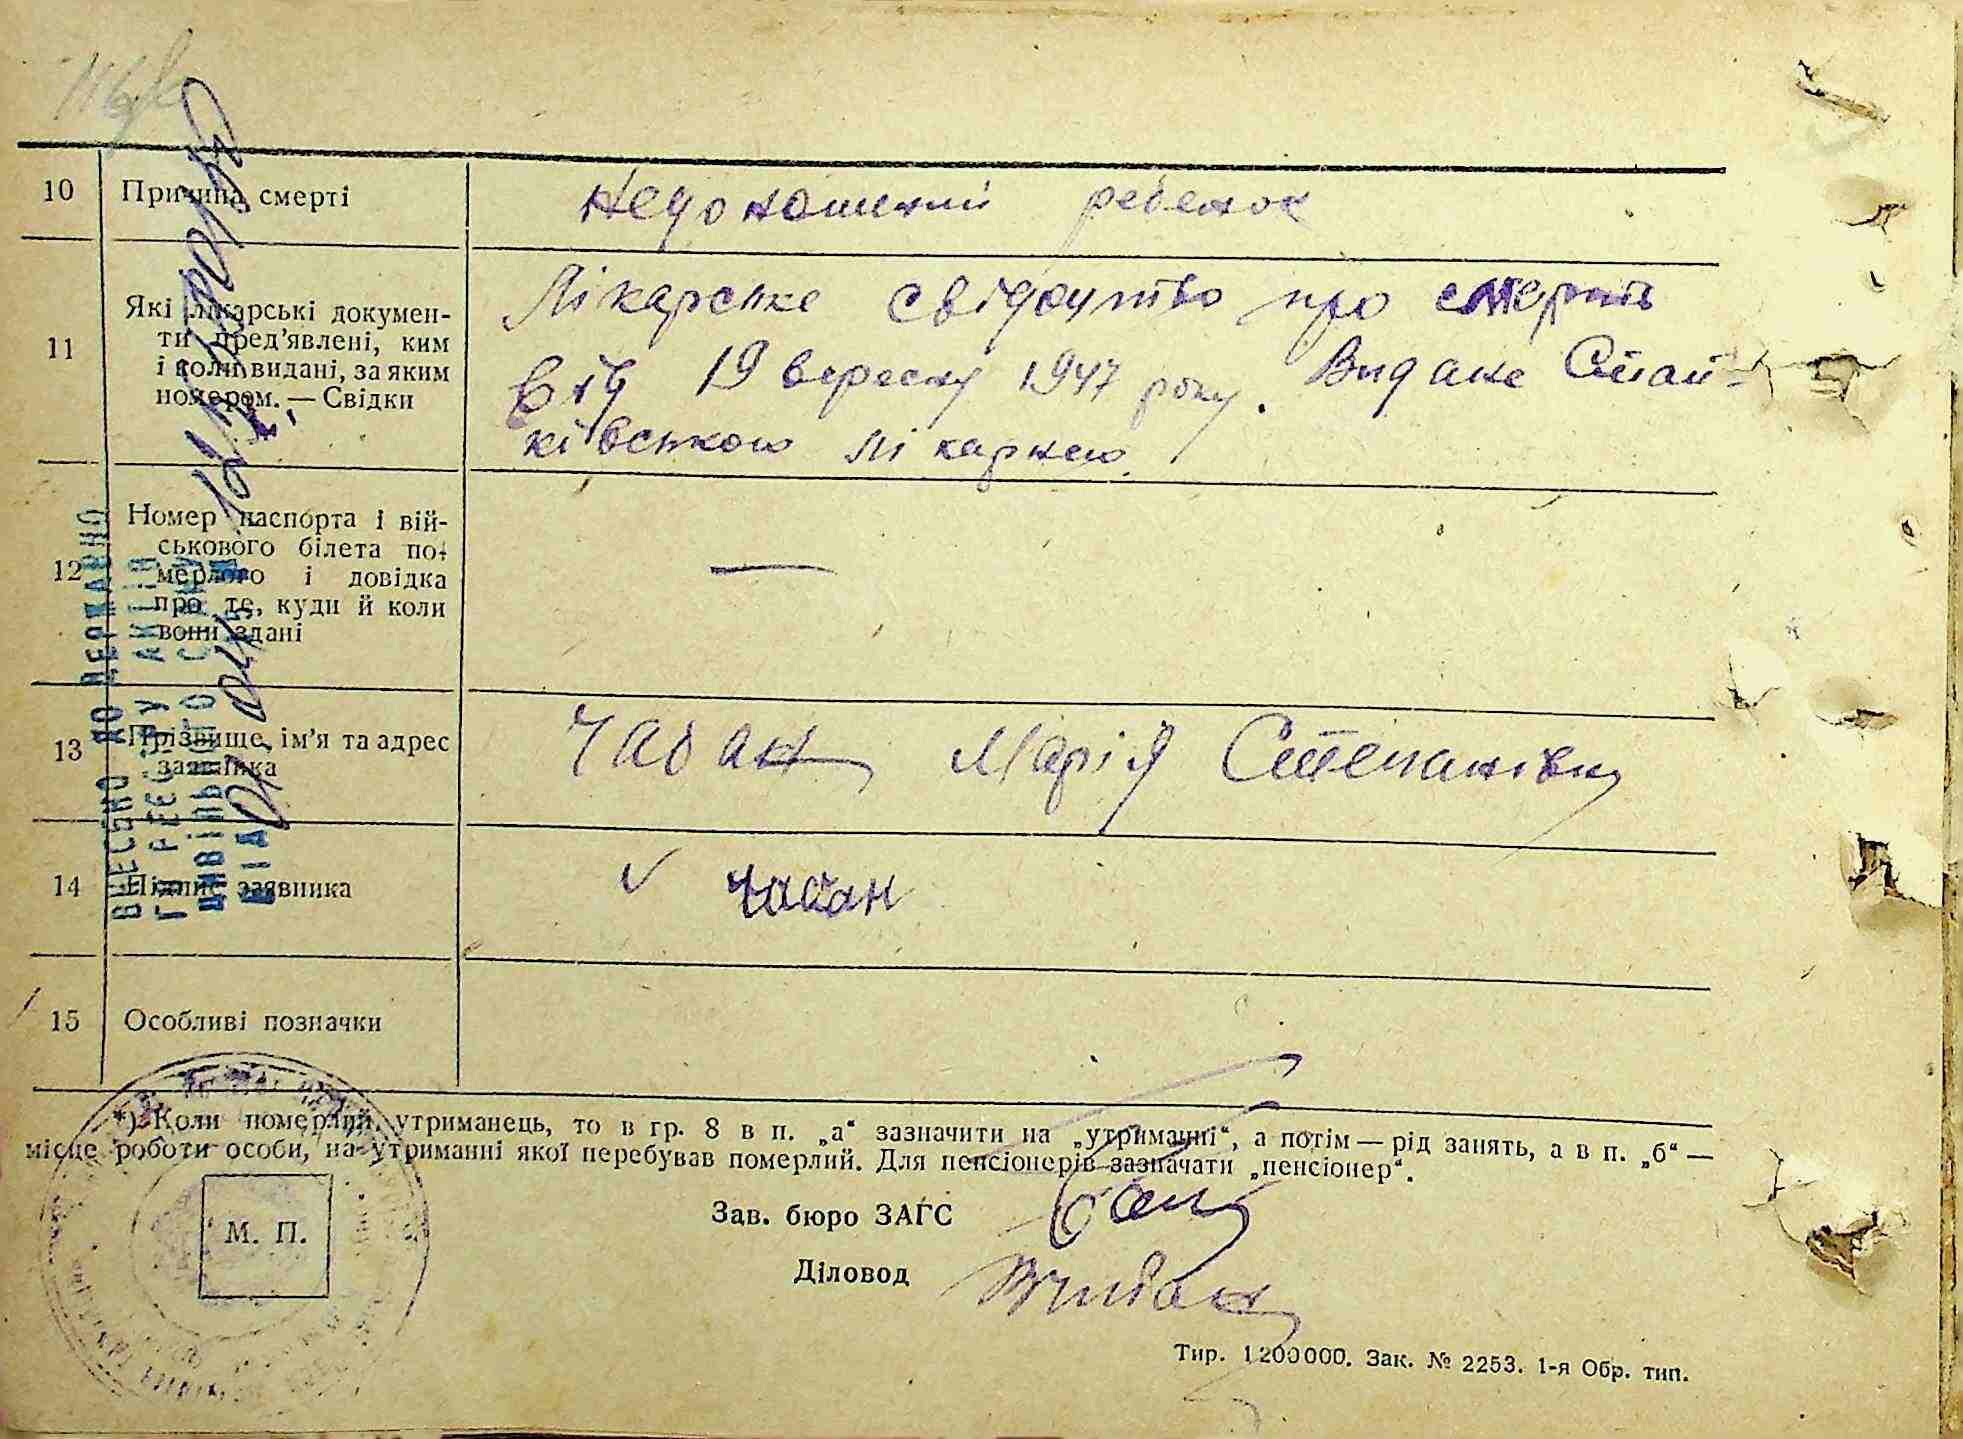 10 Причина смерті Недоношений ребенок
11 Які лікарські докумен-
ти пред'явлені, ким
і коли видані, за яким
номером. — Свідки
Лікарське свідоцтво про смерть
від 19 вересня 1947 року. Видане Стай-
ківською лікарнею.
12 Номер паспорта і вій-
ськового білета по-
мерлого і довідка
про те, куди й коли
вони здані
—
13 Прізвище, ім'я та адрес
заявника
Чабан Марія Степанівна
14 Підпис заявника
Чабан
15 Особливі позначки
ВНЕСЕНО ДО ДЕРЖАВНО
ГО РЕЄСТРУ АКТІВ
ЦИВІЛЬНОГО СТАНУ
*) Коли померлий утриманець, то в гр. 8 в п. „а“ зазначити на „утриманні“, а потім — рід занять, а в п. „б“ —
місце роботи особи, на утриманні якої перебував померлий. Для пенсіонерів зазначати „пенсіонер“.
Зав. бюро ЗАГС
М. П.
Діловод
Тир. 1200000. Зак. № 2253. 1-я Обр. тип.